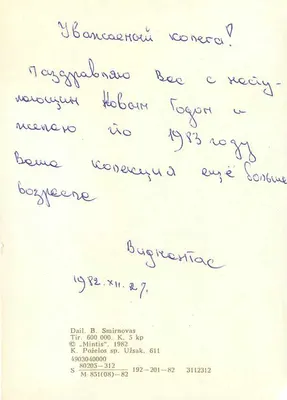 Уважаемый колега!
Паздравляю Вас с насту-
пающим Новым Годом и
желаю по 1983 году
Ваша колекция ещё больше
возрасла
Видмантас
1982.XII.27.
Dail. B. Smirnovas
Tir. 600 000. K. 5 kp
© „Mintis“, 1982
K. Poželos sp. Užsak. 611
4903040000
S 80205—312 192—201—82 3112312
M 851(08)—82